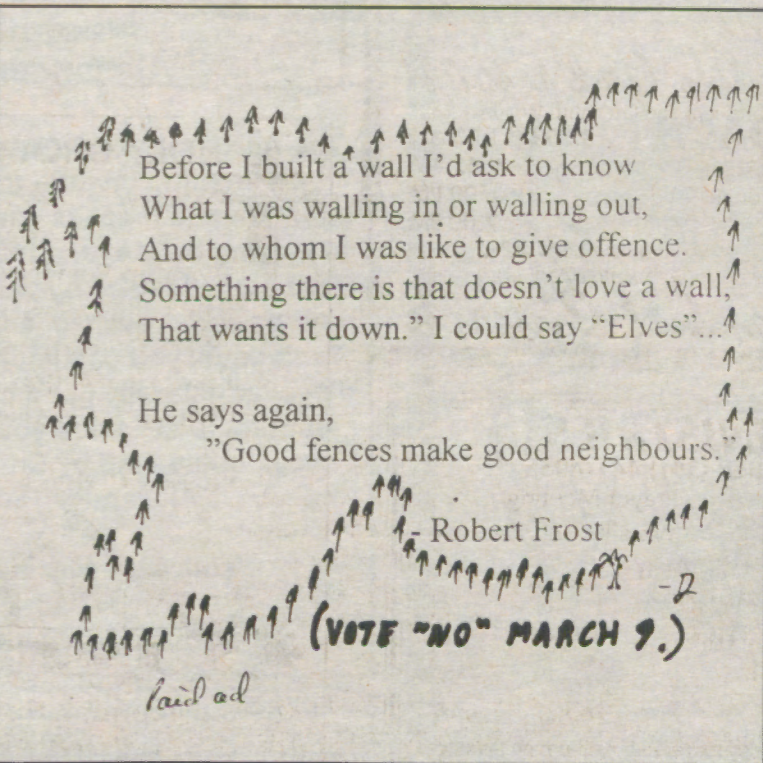 Before I built a wall I'd ask to know
What I was walling in or walling out,
And to whom I was like to give offence.
Something there is that doesn't love a wall,
That wants it down.” I could say “Elves”...
He says again,
”Good fences make good neighbours.”
- Robert Frost
- D
(VOTE "NO" MARCH 9.)
Paid ad